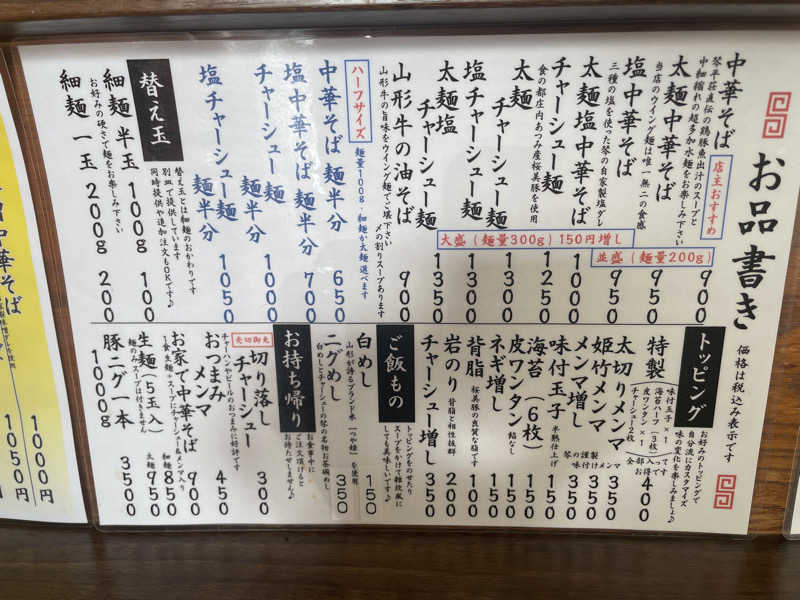 お品書き
価格は税込み表示です
中華そば 900
店主おすすめ
琴平荘直伝の鶏豚魚出汁のスープと
中細縮れの超多加水麺をお楽しみ下さい
太麺中華そば 950
当店のウイング麺は唯一無二の食感
塩中華そば 950
三種の塩を使った琴の自家製塩ダレ
太麺塩中華そば 1000
チャーシュー麺 1250
食の都庄内あつみ産桜美豚を使用
太麺チャーシュー麺 1300
塩チャーシュー麺 1300
太麺塩チャーシュー麺 1350
並盛(麺量200g)
大盛(麺量300g)150円増し
山形牛の油そば 900
山形牛の旨味をウイング麺でご堪下さい
〆の割りスープあります
ハーフサイズ
麺量100g・細麺か太麺選べます
中華そば 麺半分 650
塩中華そば 麺半分 700
チャーシュー麺 麺半分 1000
塩チャーシュー麺 麺半分 1050
替え玉
替え玉とは細麺のおかわりです
別皿で提供しています
同時提供や追加注文もOKです♪
細麺 半玉 100g 100
お好みの硬さで麺をお楽しみ下さい
細麺 一玉 200g 200
トッピング
お好みのトッピングで
自分流にカスタマイズ
味の変化を楽しみましょ♪
特製 400
味付玉子×1
海苔ハーフ(3枚)
皮ワンタン×1
チャーシュー2枚
全部入って
お得です
太切りメンマ 350
姫竹メンマ 350
メンマ増し 350
琴の謹製
味付けメンマ
味付玉子 150
半熟仕上げ
海苔(6枚) 150
皮ワンタン 150
餡なし
ネギ増し 100
背脂 100
桜美豚の良質な脂です
岩のり 200
背脂と相性抜群
チャーシュー増し 350
ご飯もの
トッピングをのせたり
スープをかけて雑炊風に
しても美味しいです♪
白めし 150
山形が誇るブランド米「つや姫」を使用
ニグめし 350
白めしとチャーシューの琴の名物お茶碗めし
お持ち帰り
お食事中に
ご注文頂けると
お待たせしません♪
切り落しチャーシュー 300
売切御免
おつまみメンマ 450
チャーハンやビールのおつまみに好評です
お家で中華そば 900
1食生麺・スープにチャーシュー&メンマ入り
生麺(5玉入) 細麺850 太麺950
麺のみスープは付きません
豚ニグ一本 1000g 3500
中華そば
1000円
1050円